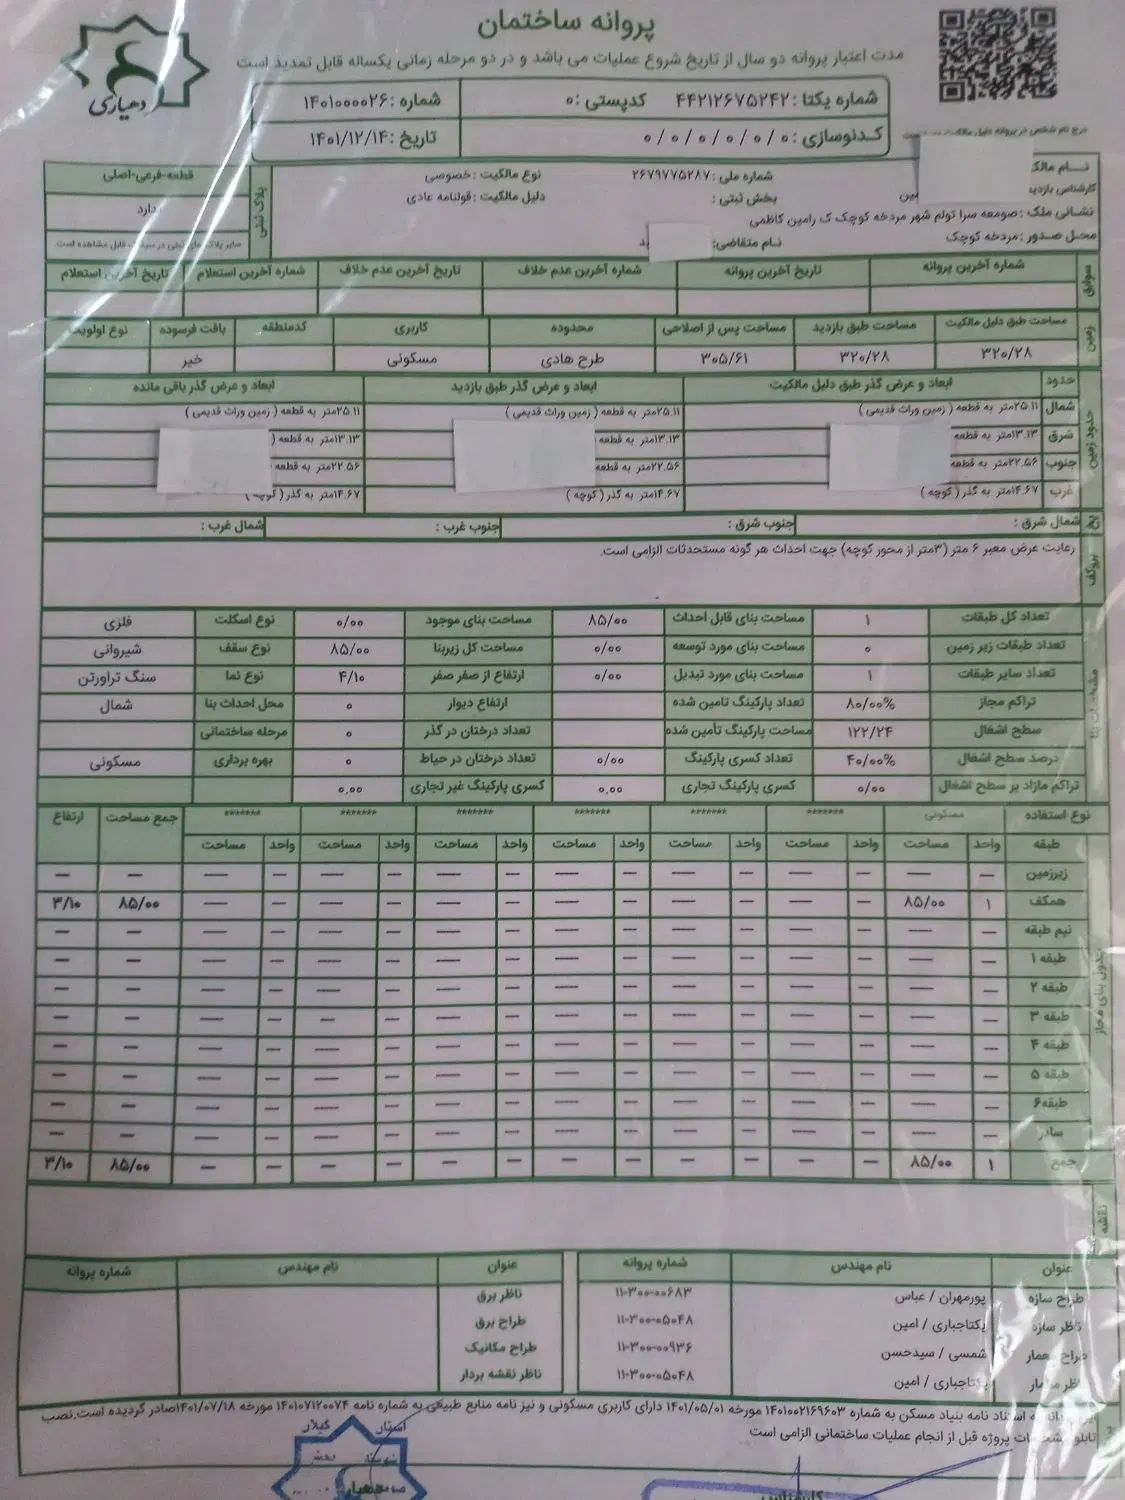 پروانه ساختمان
مدت اعتبار پروانه دو سال از تاریخ شروع عملیات می باشد و در دو مرحله زمانی یکساله قابل تمدید است
دهیاری
شماره یکتا : ۴۴۲۱۲۶۷۵۲۴۲ کدپستی : ۰ شماره : ۱۴۰۱۰۰۰۰۲۶
کدنوسازی : ۰ / ۰ / ۰ / ۰ / ۰ / ۰ / ۰ تاریخ : ۱۴۰۱/۱۲/۱۴
درج نام شخص در پروانه دلیل مالکیت
نام مالک شماره ملی : ۲۶۷۹۷۷۵۲۸۷ نوع مالکیت : خصوصی
کارشناس بازدید بخش ثبتی : دلیل مالکیت : قولنامه عادی
نشانی ملک : صومعه سرا تولم شهر مردخه کوچک ک رامین کاظمی
محل صدور : مردخه کوچک نام متقاضی:
پلاک ثبتی
قطعه-فرعی-اصلی
ندارد
سایر پلاک های ثبتی در سیستم قابل مشاهده است.
سوابق
شماره آخرین پروانه تاریخ آخرین پروانه شماره آخرین عدم خلاف تاریخ آخرین عدم خلاف شماره آخرین استعلام تاریخ آخرین استعلام
زمین
مساحت طبق دلیل مالکیت مساحت طبق بازدید مساحت پس از اصلاحی محدوده کاربری کدمنطقه بافت فرسوده نوع اولویت
۳۲۰/۲۸ ۳۲۰/۲۸ ۳۰۵/۶۱ طرح هادی مسکونی خیر
حدود زمین
حدود ابعاد و عرض گذر طبق دلیل مالکیت ابعاد و عرض گذر طبق بازدید ابعاد و عرض گذر باقی مانده
شمال ۲۵.۱۱متر به قطعه ( زمین وراث قدیمی ) ۲۵.۱۱متر به قطعه ( زمین وراث قدیمی ) ۲۵.۱۱متر به قطعه ( زمین وراث قدیمی )
شرق ۱۳.۱۳متر به قطعه ۱۳.۱۳متر به قطعه ۱۳.۱۳متر به قطعه (
جنوب ۲۲.۵۶متر به قطعه ۲۲.۵۶متر به قطعه ۲۲.۵۶متر به قطعه
غرب ۱۴.۶۷متر به گذر ( کوچه ) ۱۴.۶۷متر به گذر ( کوچه ) ۱۴.۶۷متر به گذر ( کوچه )
پخ شمال شرق : جنوب شرق : جنوب غرب : شمال غرب :
بروکف
رعایت عرض معبر ۶ متر (۳متر از محور کوچه) جهت احداث هر گونه مستحدثات الزامی است.
مشخصات بنا
تعداد کل طبقات ۱ مساحت بنای قابل احداث ۸۵/۰۰ مساحت بنای موجود ۰/۰۰ نوع اسکلت فلزی
تعداد طبقات زیر زمین ۰ مساحت بنای مورد توسعه ۰/۰۰ مساحت کل زیربنا ۸۵/۰۰ نوع سقف شیروانی
تعداد سایر طبقات ۱ مساحت بنای مورد تبدیل ۰/۰۰ ارتفاع از صفر صفر ۴/۱۰ نوع نما سنگ تراورتن
تراکم مجاز ۸۰/۰۰% تعداد پارکینگ تامین شده ارتفاع دیوار ۰ محل احداث بنا شمال
سطح اشغال ۱۲۲/۲۴ مساحت پارکینگ تأمین شده تعداد درختان در گذر ۰ مرحله ساختمانی
درصد سطح اشغال ۴۰/۰۰% تعداد کسری پارکینگ ۰/۰۰ تعداد درختان در حیاط ۰ بهره برداری مسکونی
تراکم مازاد بر سطح اشغال ۰/۰۰ کسری پارکینگ تجاری ۰.۰۰ کسری پارکینگ غیر تجاری ۰.۰۰
جدول بنای مجاز
نوع استفاده مسکونی ******* ******* ******* ******* ******* ******* جمع مساحت ارتفاع
طبقه واحد مساحت واحد مساحت واحد مساحت واحد مساحت واحد مساحت واحد مساحت واحد مساحت
زیرزمین — — — — — — — — — — — — — — — —
همکف ۱ ۸۵/۰۰ — — — — — — — — — — — — ۸۵/۰۰ ۳/۱۰
نیم طبقه — — — — — — — — — — — — — — — —
طبقه ۱ — — — — — — — — — — — — — — — —
طبقه ۲ — — — — — — — — — — — — — — — —
طبقه ۳ — — — — — — — — — — — — — — — —
طبقه ۴ — — — — — — — — — — — — — — — —
طبقه ۵ — — — — — — — — — — — — — — — —
طبقه ۶ — — — — — — — — — — — — — — — —
سایر — — — — — — — — — — — — — — — —
جمع ۱ ۸۵/۰۰ — — — — — — — — — — — — ۸۵/۰۰ ۳/۱۰
نقشه
عنوان نام مهندس شماره پروانه عنوان نام مهندس شماره پروانه
طراح سازه پورمهران / عباس ۱۱-۳۰۰-۰۰۶۸۳ ناظر برق
ناظر سازه یکتاجباری / امین ۱۱-۳۰۰-۰۵۰۴۸ طراح برق
طراح معمار شمسی / سیدحسن ۱۱-۳۰۰-۰۰۹۳۶ طراح مکانیک
ناظر معمار یکتاجباری / امین ۱۱-۳۰۰-۰۵۰۴۸ ناظر نقشه بردار
این پروانه به استناد نامه بنیاد مسکن به شماره ۱۴۰۱۰۰۲۱۶۹۶۰۳ مورخه ۱۴۰۱/۰۵/۰۱ دارای کاربری مسکونی و نیز نامه منابع طبیعی به شماره نامه ۱۴۰۱۰۷۱۲۰۰۷۴ مورخه ۱۴۰۱/۰۷/۱۸صادر گردیده است.نصب
تابلو مشخصات پروژه قبل از انجام عملیات ساختمانی الزامی است
استان گیلان
بخش
دهیار
کارشناس